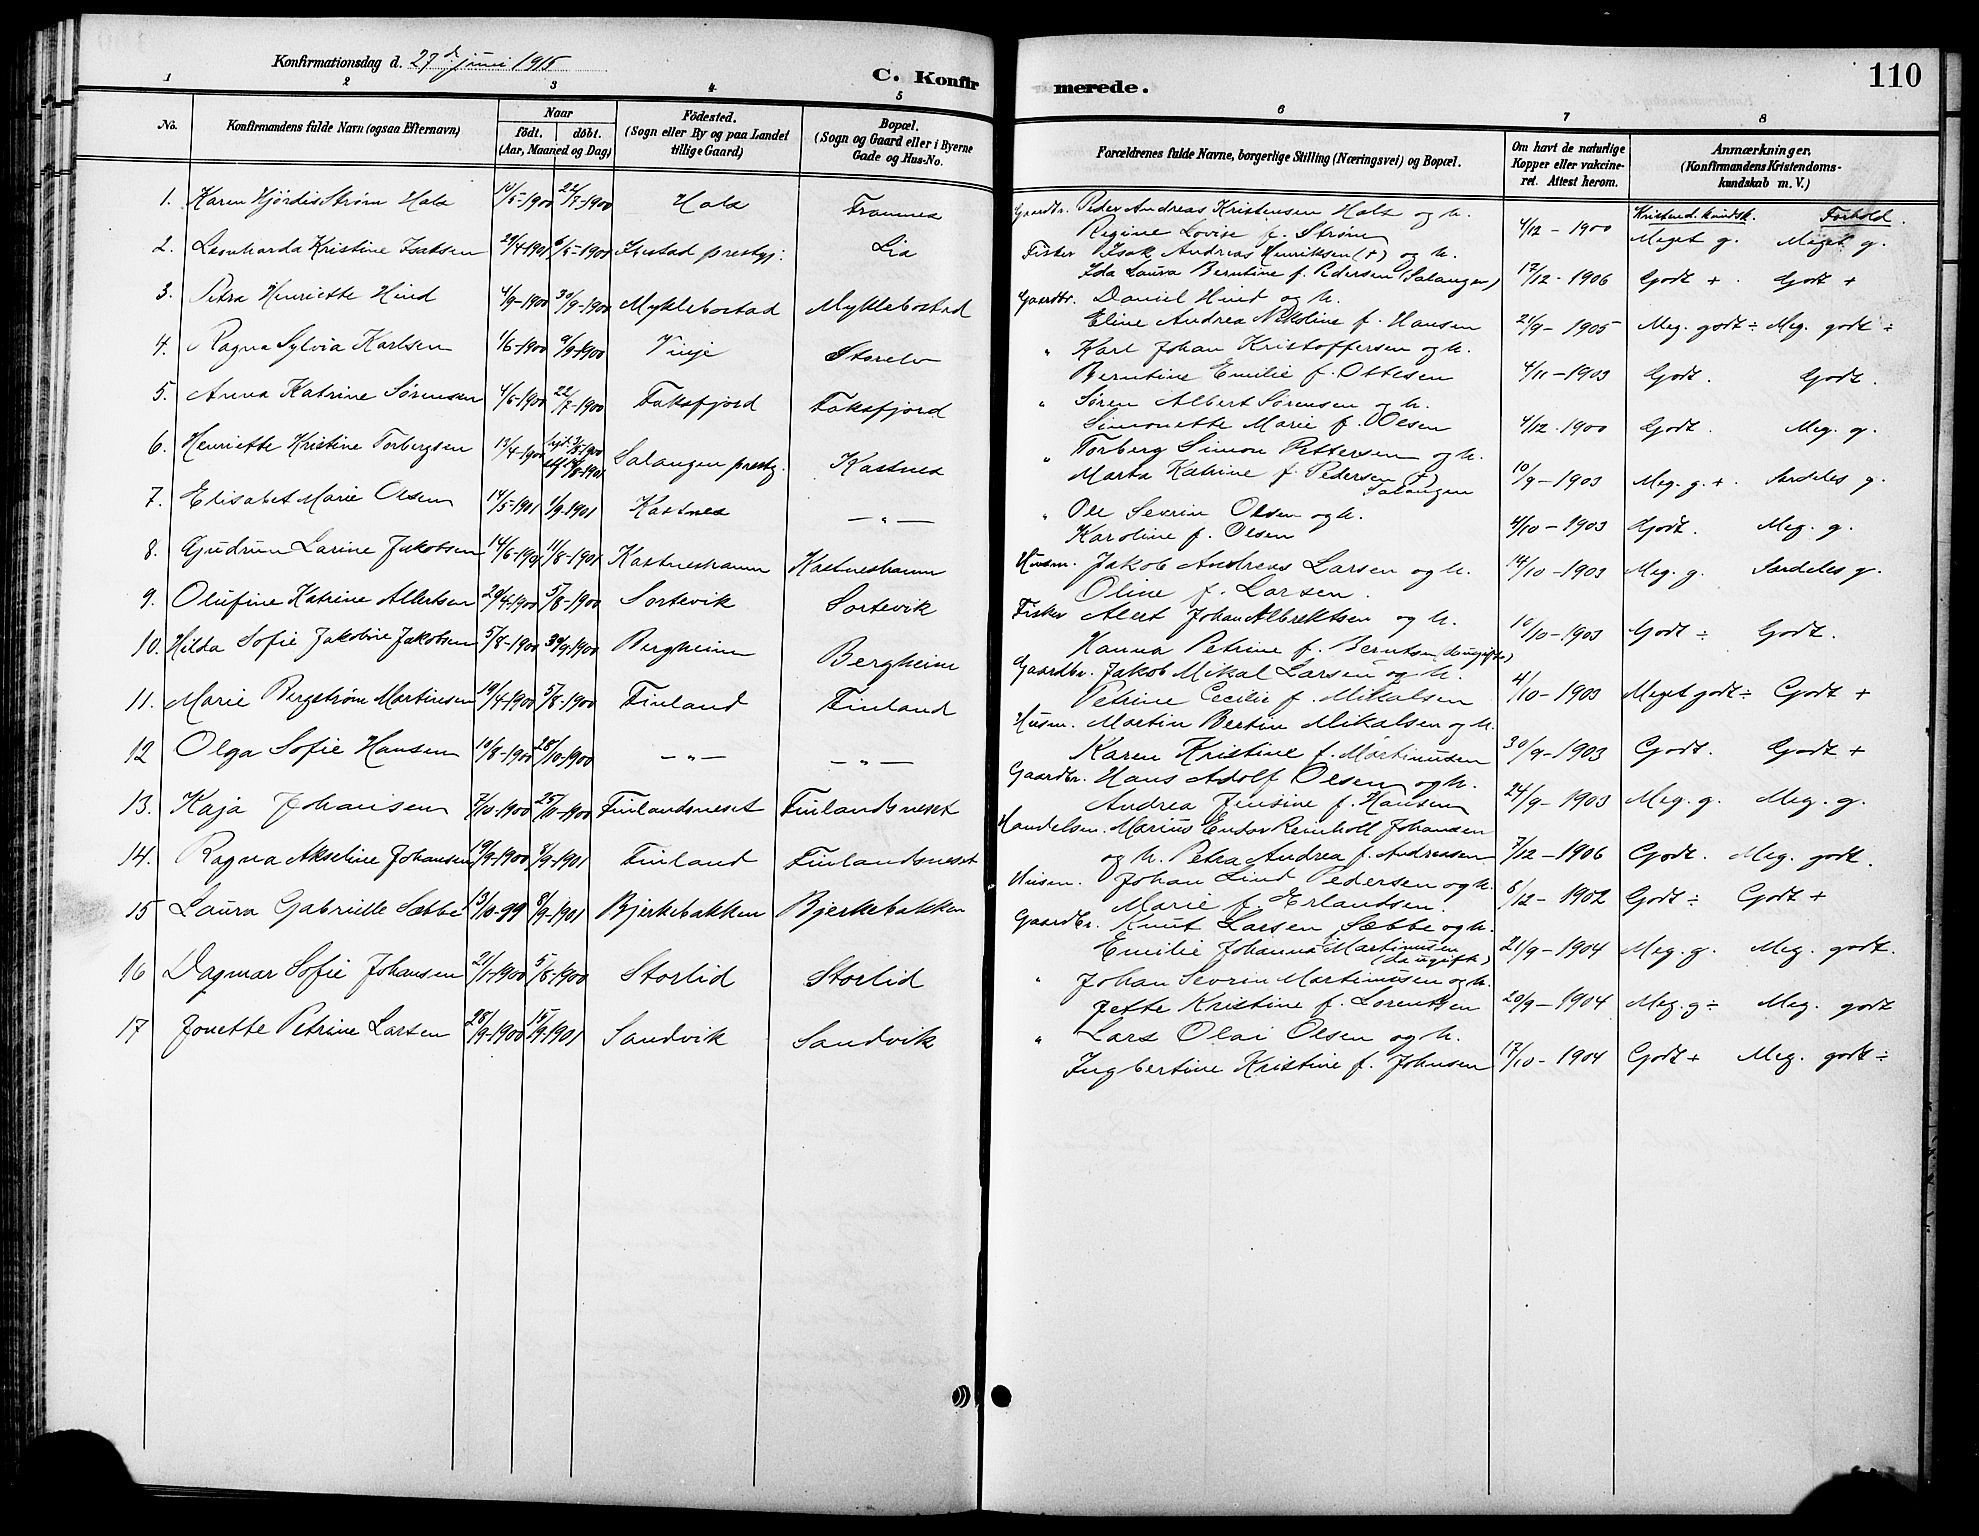 Konfirmationsdag d. 27de juni 1915
C. Konfir
1 2 3 4 5
No. Konfirmandens fulde Navn (ogsaa Efternavn) Naar födt. döbt. (Aar, Maaned og Dag) Födested. (Sogn eller By og paa Landet tillige Gaard) Bopæl. (Sogn og Gaard eller i Byerne Gade og Hus-No.
1. Karen Hjördis Strøm Hals 10/5-1900 22/7-1900 Hals Frannes
2. Leonharda Kristine Isaksen 29/4-1901 6/5-1900 Ibestad prestgj. Lia
3. Petra Henriette Hind 4/9-1900 30/9-1900 Myklebostad Myklebostad
4. Ragna Sylvia Karlsen 1/6-1900 9/9-1900 Vinje Storelv
5. Anna Katrine Sørensen 4/6-1900 22/7-1900 Faksfjord Faksfjord
6. Henriette Kristine Torbergsen 13/4-1900 Salangen prestg. Kastnes
7. Elisabet Marie Olsen 14/5-1901 1/9-1901 Kastnes —„—
8. Gudrun Larine Jakobsen 14/6-1901 11/8-1901 Kastneshamn Kastneshamn
9. Olufine Katrine Albertsen 5/8-1900 Sortevik Sortevik
10. Hilda Sofie Jakobine Jakobsen 5/8-1900 30/9-1900 Bergheim Bergheim
11. Marie Bergstrøm Martinsen 19/4-1900 5/8-1900 Finland Finland
12 Olga Sofie Hansen 10/8-1900 28/10-1900 —„— —„—
13. Kaja Johansen 7/10-1900 25/11-1900 Finlandsneset Finlandsneset
14. Ragna Akseline Johansen 19/9-1900 8/9-1901 Finland Finlandsneset
15 Laura Gabrielle Sæbbe 13/10-99 8/9-1901 Bjerkebakken Bjerkebakken
16 Dagmar Sofie Johansen 21/1-1900 5/8-1900 Storlid Storlid
17 Jonette Petrine Larsen 28/9-1900 15/9-1901 Sandvik Sandvik
merede.
110
6 7 8
Forældrenes fulde Navne, borgerlige Stilling (Næringsvei) og Bopæl. Om havt de naturlige Kopper eller vakcineret. Attest herom. Anmærkninger. (Konfirmandens Kristendomskundskab m. V.)
Kristend. kundsk. Forhold.
Gaardbr. Peder Andreas Kristensen Hals og h.
Regine Lovise f. Strøm 4/12-1900 Meget g. Meget g.
Fisker Isak Andreas Henriksen (+) og h.
Ida Laura Berntine f. Pedersen (Salangen) 17/12-1906 Godt + Godt +
Gaardbr. Daniel Hind og h.
Eline Andrea Nikoline f. Hansen 21/9-1905 Meg. godt ÷ Meg. godt ÷
„ Karl Johan Kristoffersen og h.
Berntine Emilie f. Ottesen 4/11-1903 Godt. Godt.
„ Søren Albert Sørensen og h.
Simonette Marie f. Olsen 4/12-1900 Godt. Meg. g.
„ Torberg Simon Pettersen og h.
Marta Katrine f. Pedersen Salangen 10/9-1903 Meg. g. +. Særdeles g.
„ Ole Sevrin Olsen og h.
Karoline f. Olsen 4/10-1903 Godt. Meg. g.
Husm. Jakob Andreas Larsen og h.
Oline f. Larsen. 14/10-1903 Meg. g. Særdeles g.
Fisker Albert Johan Albrektsen og h.
Hanna Petrine f. Berntsen (daugifte) 10/10-1903 Godt ÷ Godt.
Gaardbr. Jakob Mikal Larsen og h.
Petrine Cecilie f. Mikalsen 4/10-1903 Meget godt ÷ Godt +
Husm. Martin Bertin Mikalsen og h.
Karen Kristine f. Martinusen 30/9-1903 Godt. Godt +
Gaardbr. Hans Adolf Olsen og h.
Andrea Jensine f. Hansen 24/9-1903 Meg. g. Meg. g.
Handelsm. Marius Endor Reinholt Johansen
og h. Petra Andrea f. Andreassen 7/12-1906 Godt. Meg. godt.
Husm. Johan Lind Pedersen og h.
Marie f. Erlandsen. 5/12-1902 Godt ÷ Godt +
Gaardbr. Knut Larsen Sæbbe og h.
Emilie Johanna Martinusen (daugifte) 21/9-1904 Meg. g. Meg. godt.
„ Johan Sevrin Martinusen og h.
Jette Kristine f. Lorentsen 20/9-1904 Meg. g ÷ Meg. godt
„ Lars Olai Olsen og h.
Ingbertine Kristine f. Johnsen 17/10-1904 Godt + Meg. godt ÷